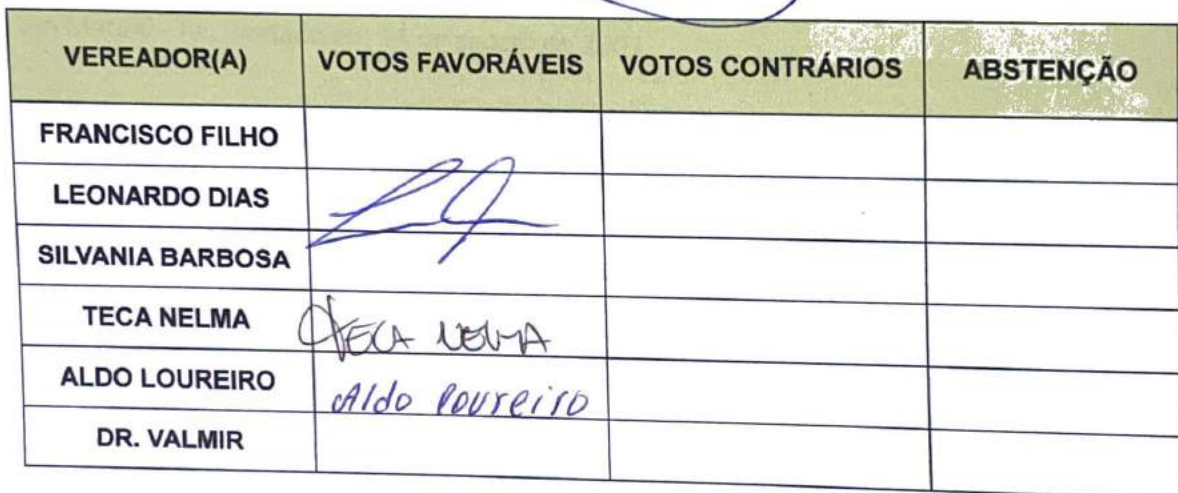 VEREADOR(A) VOTOS FAVORÁVEIS VOTOS CONTRÁRIOS ABSTENÇÃO
FRANCISCO FILHO
LEONARDO DIAS
SILVANIA BARBOSA
TECA NELMA TECA NELMA
ALDO LOUREIRO Aldo Loureiro
DR. VALMIR